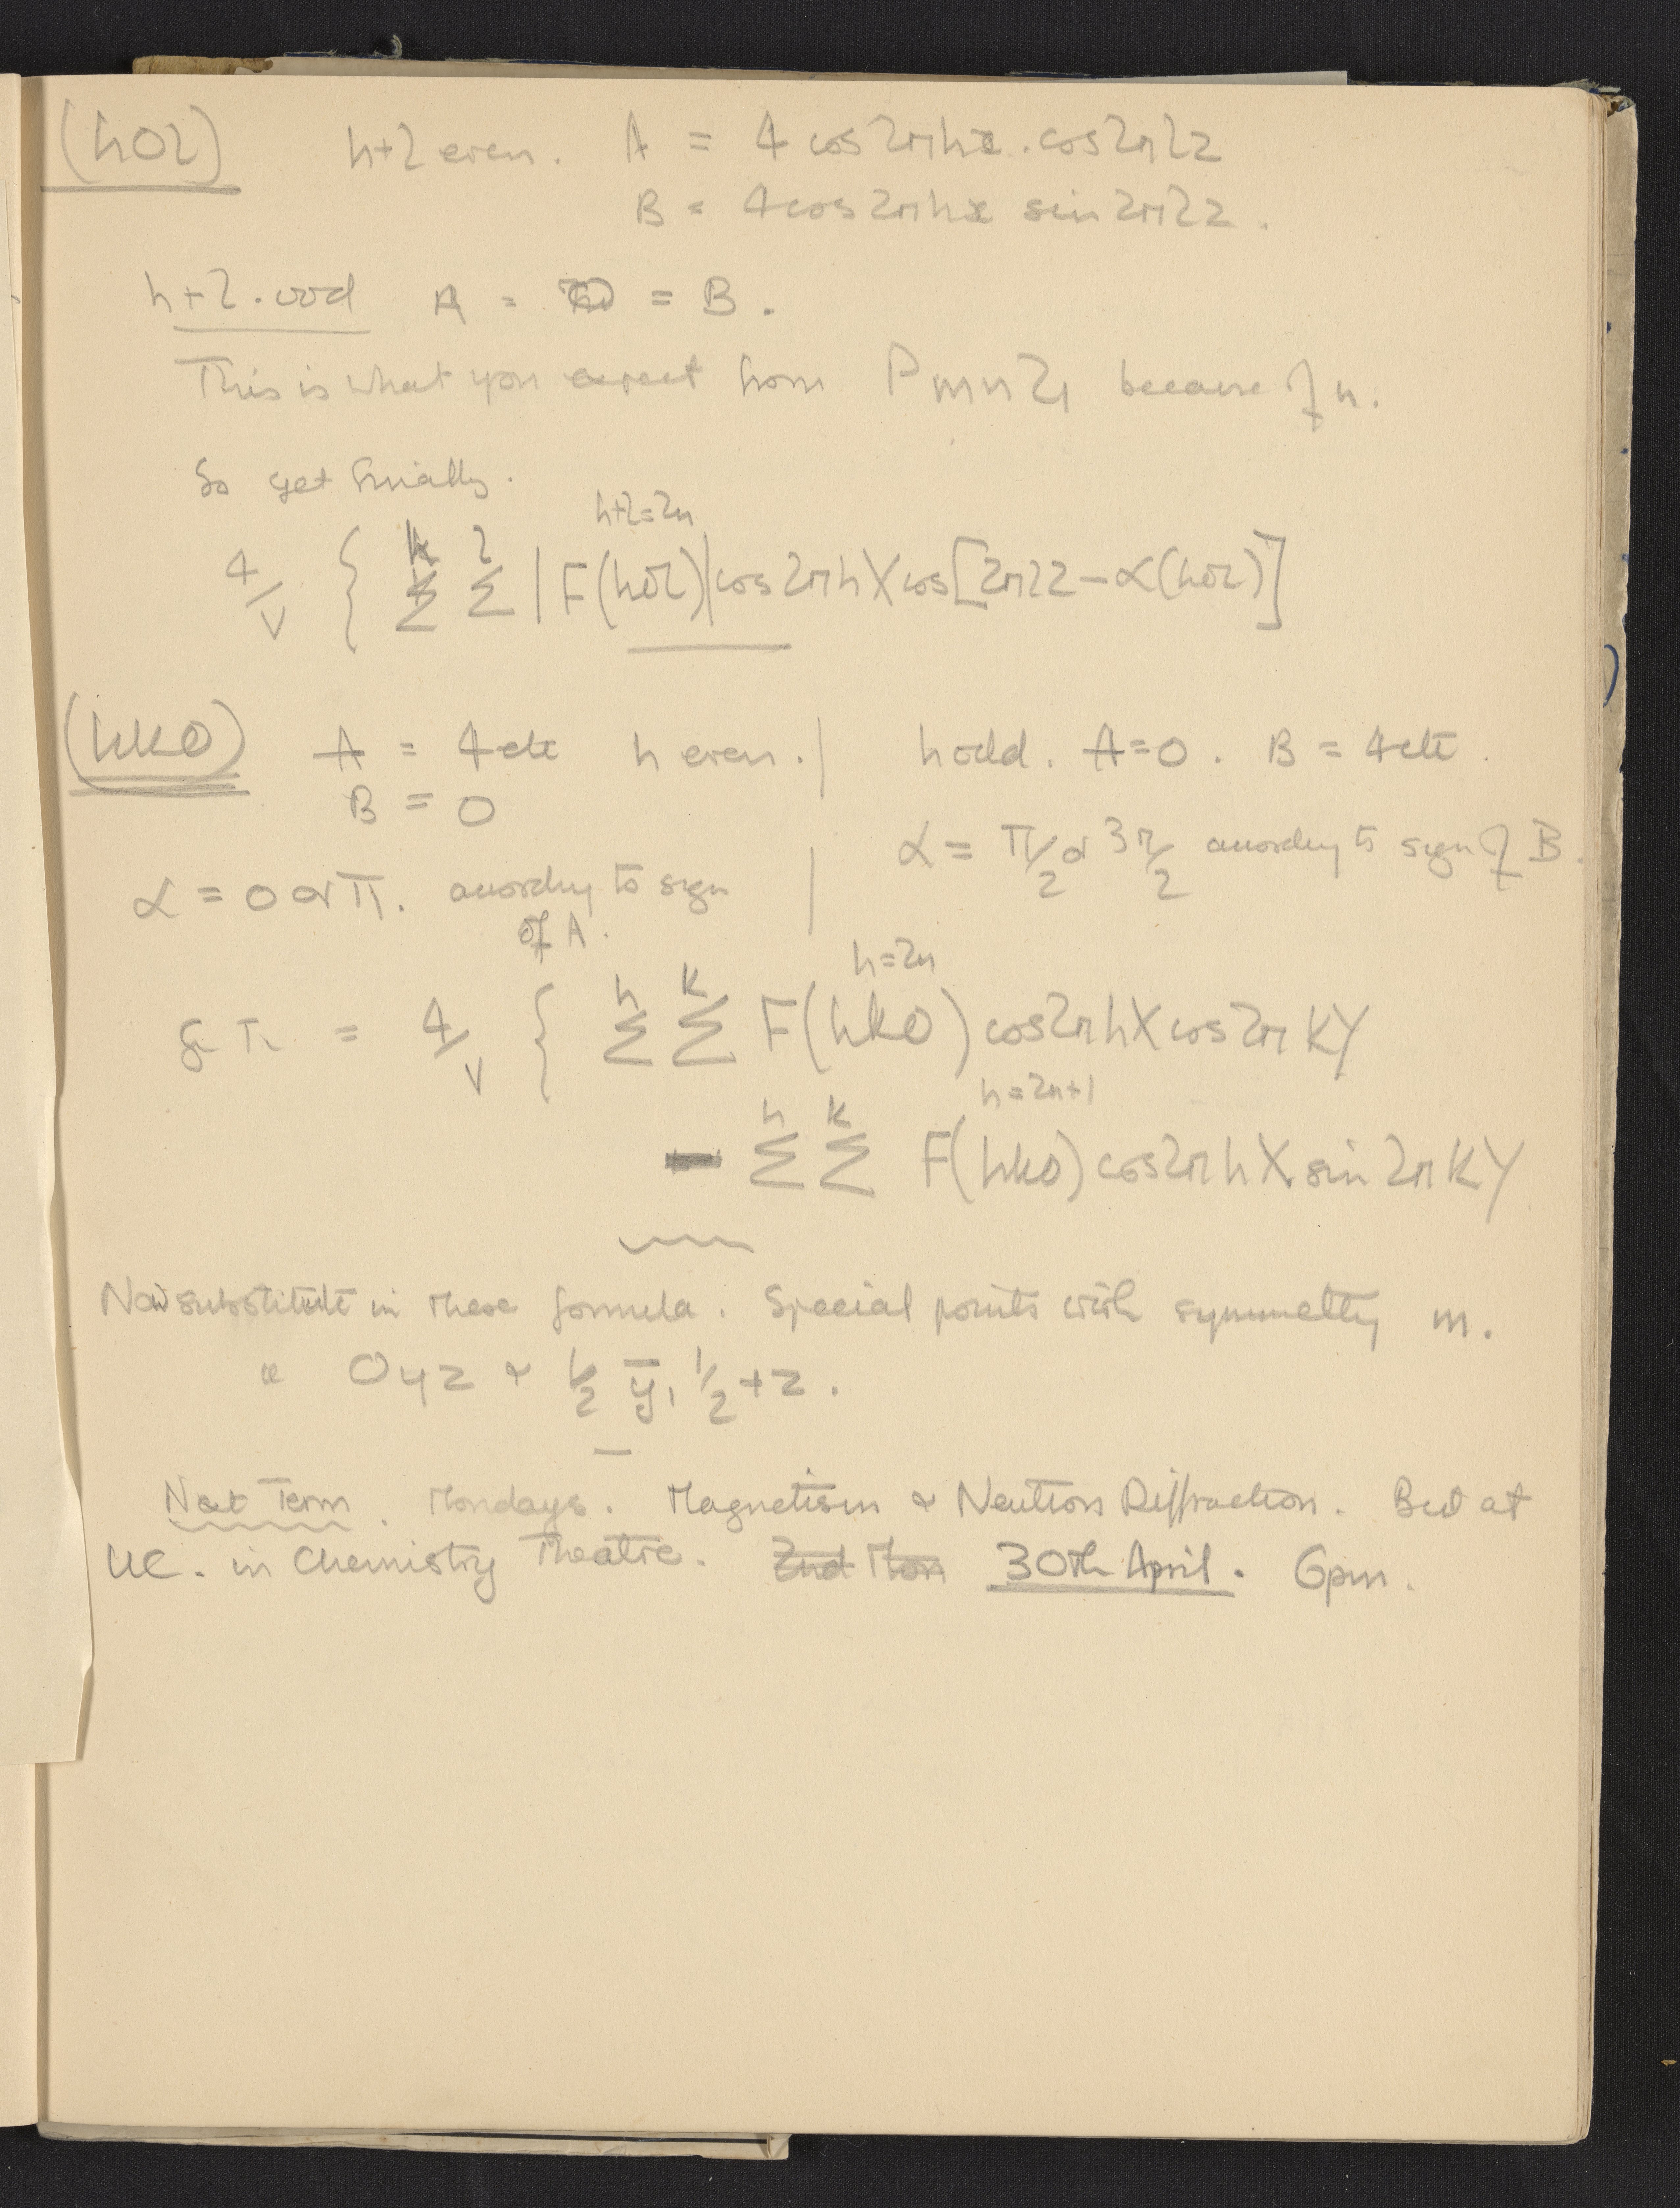 (h0l) h+l even. A = 4 cos2πhx . cos2πlz
B = 4cos2πhx sin2πlz .
h+l . odd A = 0 = B .
This is what you expect from Pmn2₁ because of n.
So get finally.
h+l=2n
4/V { Σ^h Σ^l |F(h0l)|cos2πhX cos[2πlz – α(h0l)]
(hk0) A = 4 etc h even. | h odd. A=0 . B = 4 etc .
B = 0
α = π/2 or 3π/2 according to sign of B.
α = 0 or π. according to sign |
of A.
h=2n
= 4/V { Σ^h Σ^k F(hk0) cos2πhX cos2πKY
h=2n+1
– Σ^h Σ^k F(hk0) cos2πhX sin2πKY
Now substitute in these formula . Special points with symmetry m.
0yz & ½ ȳ, ½+z .
Next Term . Mondays . Magnetism & Neutron Diffraction . But at
UC. in Chemistry Theatre. 2nd Mon 30th April . 6pm.